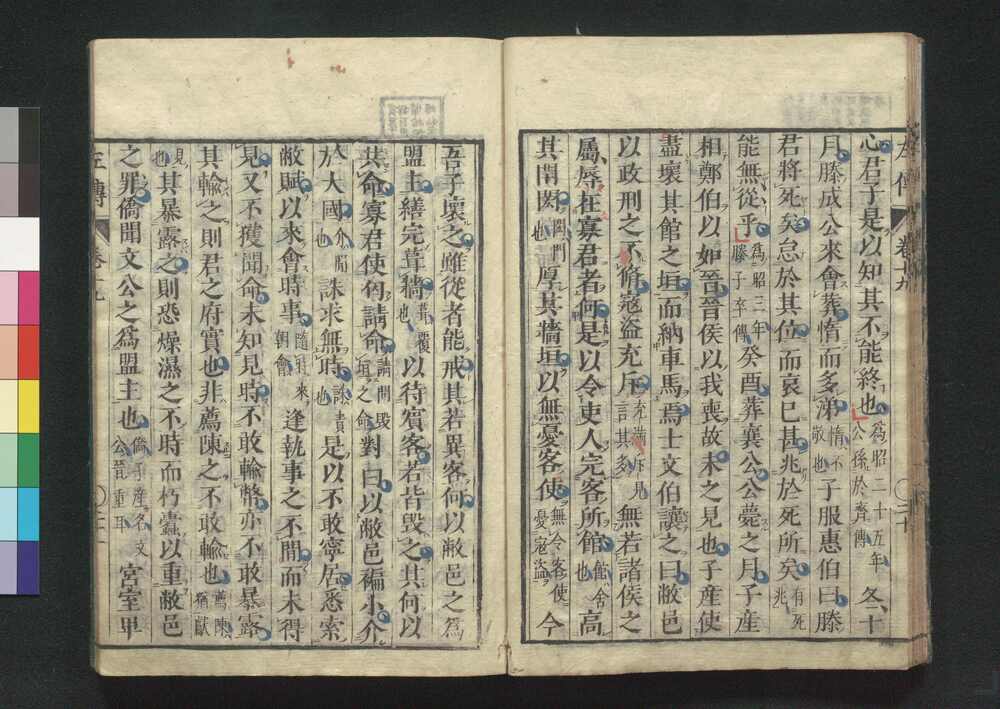 左傳 卷十九 〇三十
心君子是以知其不能終也爲昭二十五年公孫於齊傳冬十
月滕成公來會葬惰而多涕惰不敬也子服惠伯曰滕
君將死矣怠於其位而哀已甚兆於死所矣有死兆
能無從乎爲昭三年滕子卒傳癸酉葬襄公公薨之月子産
相鄭伯以如晉晉侯以我喪故未之見也子産使
盡壞其館之垣而納車馬焉士文伯讓之曰敝邑
以政刑之不脩寇盜充斥充滿斥見言其多無若諸侯之
屬辱在寡君者何是以令吏人完客所館館舍也高
其閈閎閎門也厚其牆垣以無憂客使無令客使憂寇盜今
吾子壞之雖從者能戒其若異客何以敝邑之爲
盟主繕完葺牆葺覆也以待賓客若皆毀之其何以
共命寡君使匄請命請問毀垣之命對曰以敝邑褊小介
於大國介間也誅求無時誅責也是以不敢寧居悉索
敝賦以來會時事隨時來朝會逢執事之不間而未得
見又不獲聞命未知見時不敢輸幣亦不敢暴露
其輸之則君之府實也非薦陳之不敢輸也薦陳猶獻
見也其暴露之則恐燥濕之不時而朽蠹以重敝邑
之罪僑聞文公之爲盟主也僑子産名文公晉重耳宮室卑
左傳 卷十九